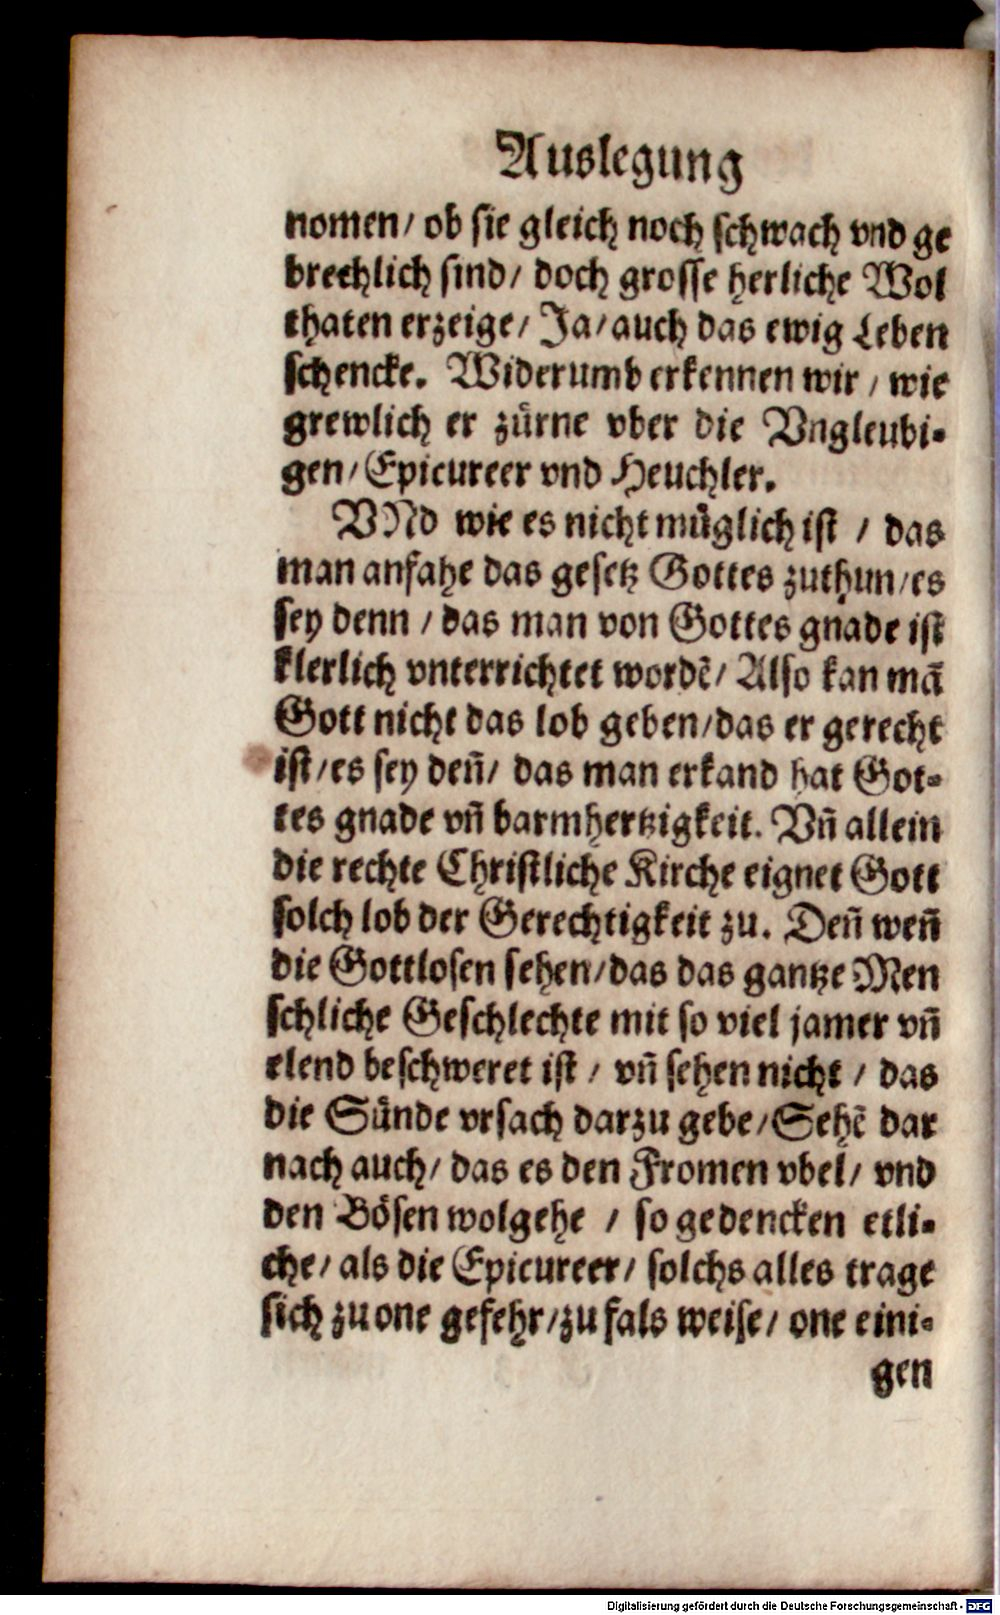 Auslegung
nomen/ ob sie gleich noch schwach vnd ge
brechlich sind/ doch grosse herliche Wol
thaten erzeige/ Ja/ auch das ewig Leben
schencke. Widerumb erkennen wir / wie
grewlich er zürne vber die Vngleubi-
gen/ Epicureer vnd Heuchler.
VNd wie es nicht müglich ist / das
man anfahe das gesetz Gottes zuthun/es
sey denn / das man von Gottes gnade ist
klerlich vnterrichtet wordē/ Also kan mā
Gott nicht das lob geben/das er gerecht
ist/es sey den̄/ das man erkand hat Got-
tes gnade vn̄ barmhertzigkeit. Vn̄ allein
die rechte Christliche Kirche eignet Gott
solch lob der Gerechtigkeit zu. Den̄ wen̄
die Gottlosen sehen/das das gantze Men
schliche Geschlechte mit so viel jamer vn̄
elend beschweret ist / vn̄ sehen nicht / das
die Sünde vrsach darzu gebe/Sehē dar
nach auch/ das es den Fromen vbel/ vnd
den Bösen wolgehe / so gedencken etli-
che/ als die Epicureer/ solchs alles trage
sich zu one gefehr/zu fals weise/ one eini-
gen
Digitalisierung gefördert durch die Deutsche Forschungsgemeinschaft - DFG